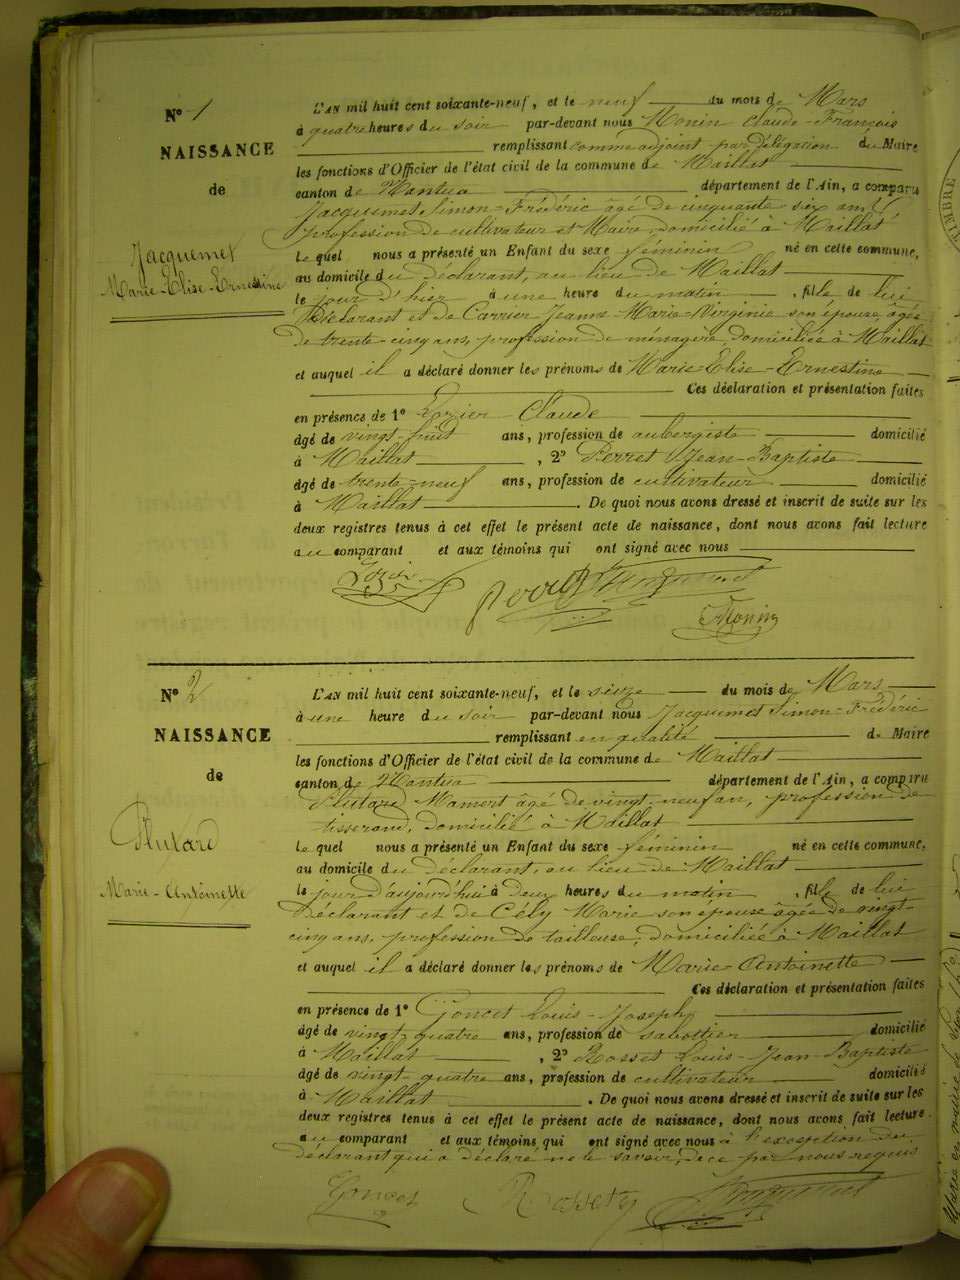 N° 1
NAISSANCE
de
Jacquemet
Marie-Elise-Ernestine
L'AN mil huit cent soixante-neuf, et le neuf du mois de Mars
à quatre heures du soir par-devant nous Monin Claude-François
remplissant comme adjoint par délégation du Maire
les fonctions d'Officier de l'état civil de la commune de Maillat
canton de Nantua département de l'Ain, a comparu
Jacquemet Simon-Frédéric âgé de cinquante six ans
profession de cultivateur et Maire, domicilié à Maillat
Lequel nous a présenté un Enfant du sexe féminin né en cette commune,
au domicile du déclarant, au lieu de Maillat
le jour d'hier à une heure du matin, fille de lui
Déclarant et de Carrier Jeanne-Marie-Virginie son épouse, âgée
de trente-cinq ans, profession de ménagère, domiciliée à Maillat
et auquel il a déclaré donner les prénoms de Marie-Elise-Ernestine
Ces déclaration et présentation faites
en présence de 1° Claude
âgé de vingt-huit ans, profession de aubergiste domicilié
à Maillat, 2° Perret Jean-Baptiste
âgé de trente-neuf ans, profession de cultivateur domicilié
à Maillat. De quoi nous avons dressé et inscrit de suite sur les
deux registres tenus à cet effet le présent acte de naissance, dont nous avons fait lecture
au comparant et aux témoins qui ont signé avec nous
Perret Jacquemet
Monin
N° 2
NAISSANCE
de
Plutard
Marie-Antoinette
L'AN mil huit cent soixante-neuf, et le seize du mois de Mars
à une heure du soir par-devant nous Jacquemet Simon-Frédéric
remplissant en qualité de Maire
les fonctions d'Officier de l'état civil de la commune de Maillat
canton de Nantua département de l'Ain, a comparu
Mamert âgé de vingt-neuf an, profession de
tisserand, domicilié à Maillat
Lequel nous a présenté un Enfant du sexe féminin né en cette commune,
au domicile du déclarant, au lieu de Maillat
le jour d'aujourd'hui à deux heures du matin, fille de lui
Déclarant et de Cély Marie son épouse âgée de vingt-
cinq ans, profession de tailleuse, domiciliée à Maillat
et auquel il a déclaré donner les prénoms de Marie-Antoinette
Ces déclaration et présentation faites
en présence de 1° Goncet Louis-Joseph
âgé de vingt-quatre ans, profession de sabottier domicilié
à Maillat, 2° Rosset Louis-Jean-Baptiste
âgé de vingt-quatre ans, profession de cultivateur domicilié
à Maillat. De quoi nous avons dressé et inscrit de suite sur les
deux registres tenus à cet effet le présent acte de naissance, dont nous avons fait lecture
au comparant et aux témoins qui ont signé avec nous à l'exception du
déclarant qui a déclaré ne le savoir, de ce par nous requis
Goncet Rosset Jacquemet
TIMBRE